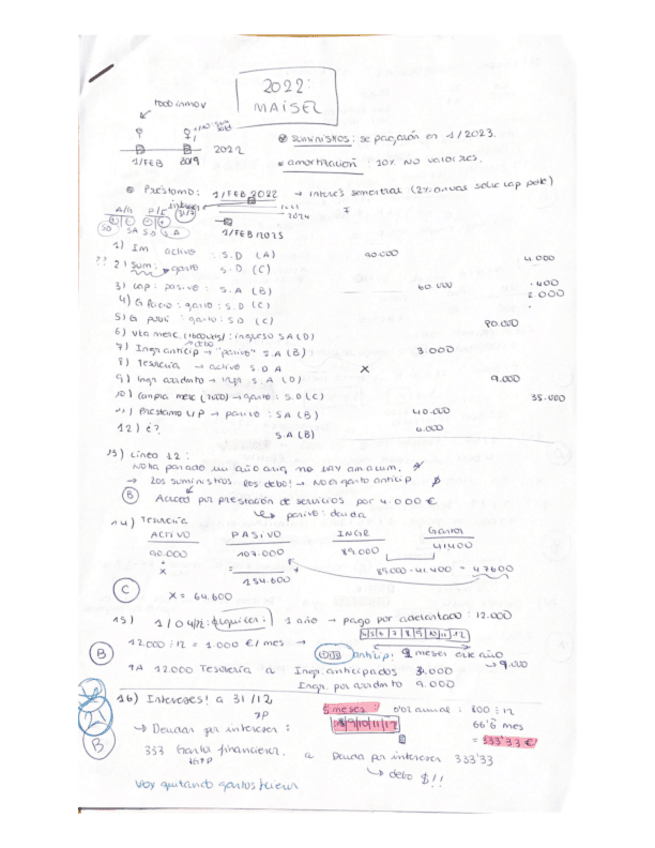 2022:
MAISEL
todo inmov
1/FEB 2019 2022
suministros: se pagarán en 1/2023.
amortización: 10% NO valores.
Préstamo: 1/FEB 2022 → interés semestral (2% anual sobre cap pdte)
intereses
31/7
2024
1/FEB/2025
A/G P/I
SD SA SD SA
1) Im activo : S.D (A) 90.000
?? 2) Sum: gasto S.D. (C) 4.000
3) cap: pasivo: S.A (B) 60.000 400
4) G : gasto: S.D (C) 2.000
5) G publi : gasto: SD (C)
6) Vta merc. : ingreso SA(D) 80.000
7) Ingr anticip → "pasivo" S.A (B) 3.000
debo
8) Tesorería → activo S D A X
9) Ingr arrdmto → ingr S.A (D) 9.000
10) compra merc → gasto: S.D(C) 35.000
11) Préstamo L/P → pasivo: SA (B) 40.000
12) ¿? S.A (B) 4.000
13) Línea 12:
No ha pasado un año aún, no hay
→ Los suministros los debo! → No es gasto anticip
(B) Acreed por prestación de servicios por 4.000 €
↳ pasivo: deuda
14) Tesorería
ACTIVO PASIVO INGR Gastos
90.000 107.000 89.000 41.400
+ = 89.000 - 41.400 = 47.600
X 154.600
(C) X = 64.600
15) 1/04/12: alquiler: 1 año → pago por adelantado: 12.000
4|5|6|7|8|9|10|11|12
12.000 ÷ 12 = 1.000 €/mes → anticip! 9 meses este año
→ 9.000
(B) 12.000 Tesorería a Ingr. anticipados 3.000
Ingr. por arrdmto 9.000
16) Intereses! a 31/12
5 meses: anual: 800 ÷ 12
→ Deudas por intereses: 8/9/10/11/12 66'6 mes
= 333'33 €
(B) 333 Gasto financiero. a Deuda por intereses 333'33
↳ debo $!!
Voy quitando gastos